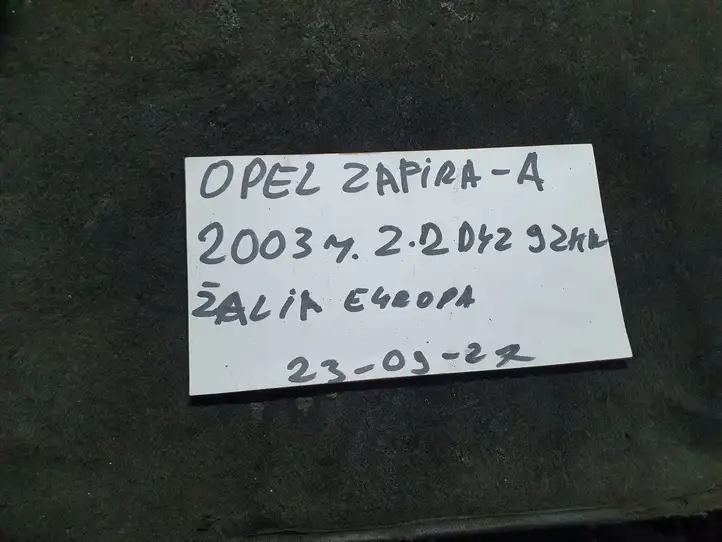 OPEL ZAPIRA-A
2003 m. 2.2 DYZ 92kw
ŽALIA EUROPA
23-09-22